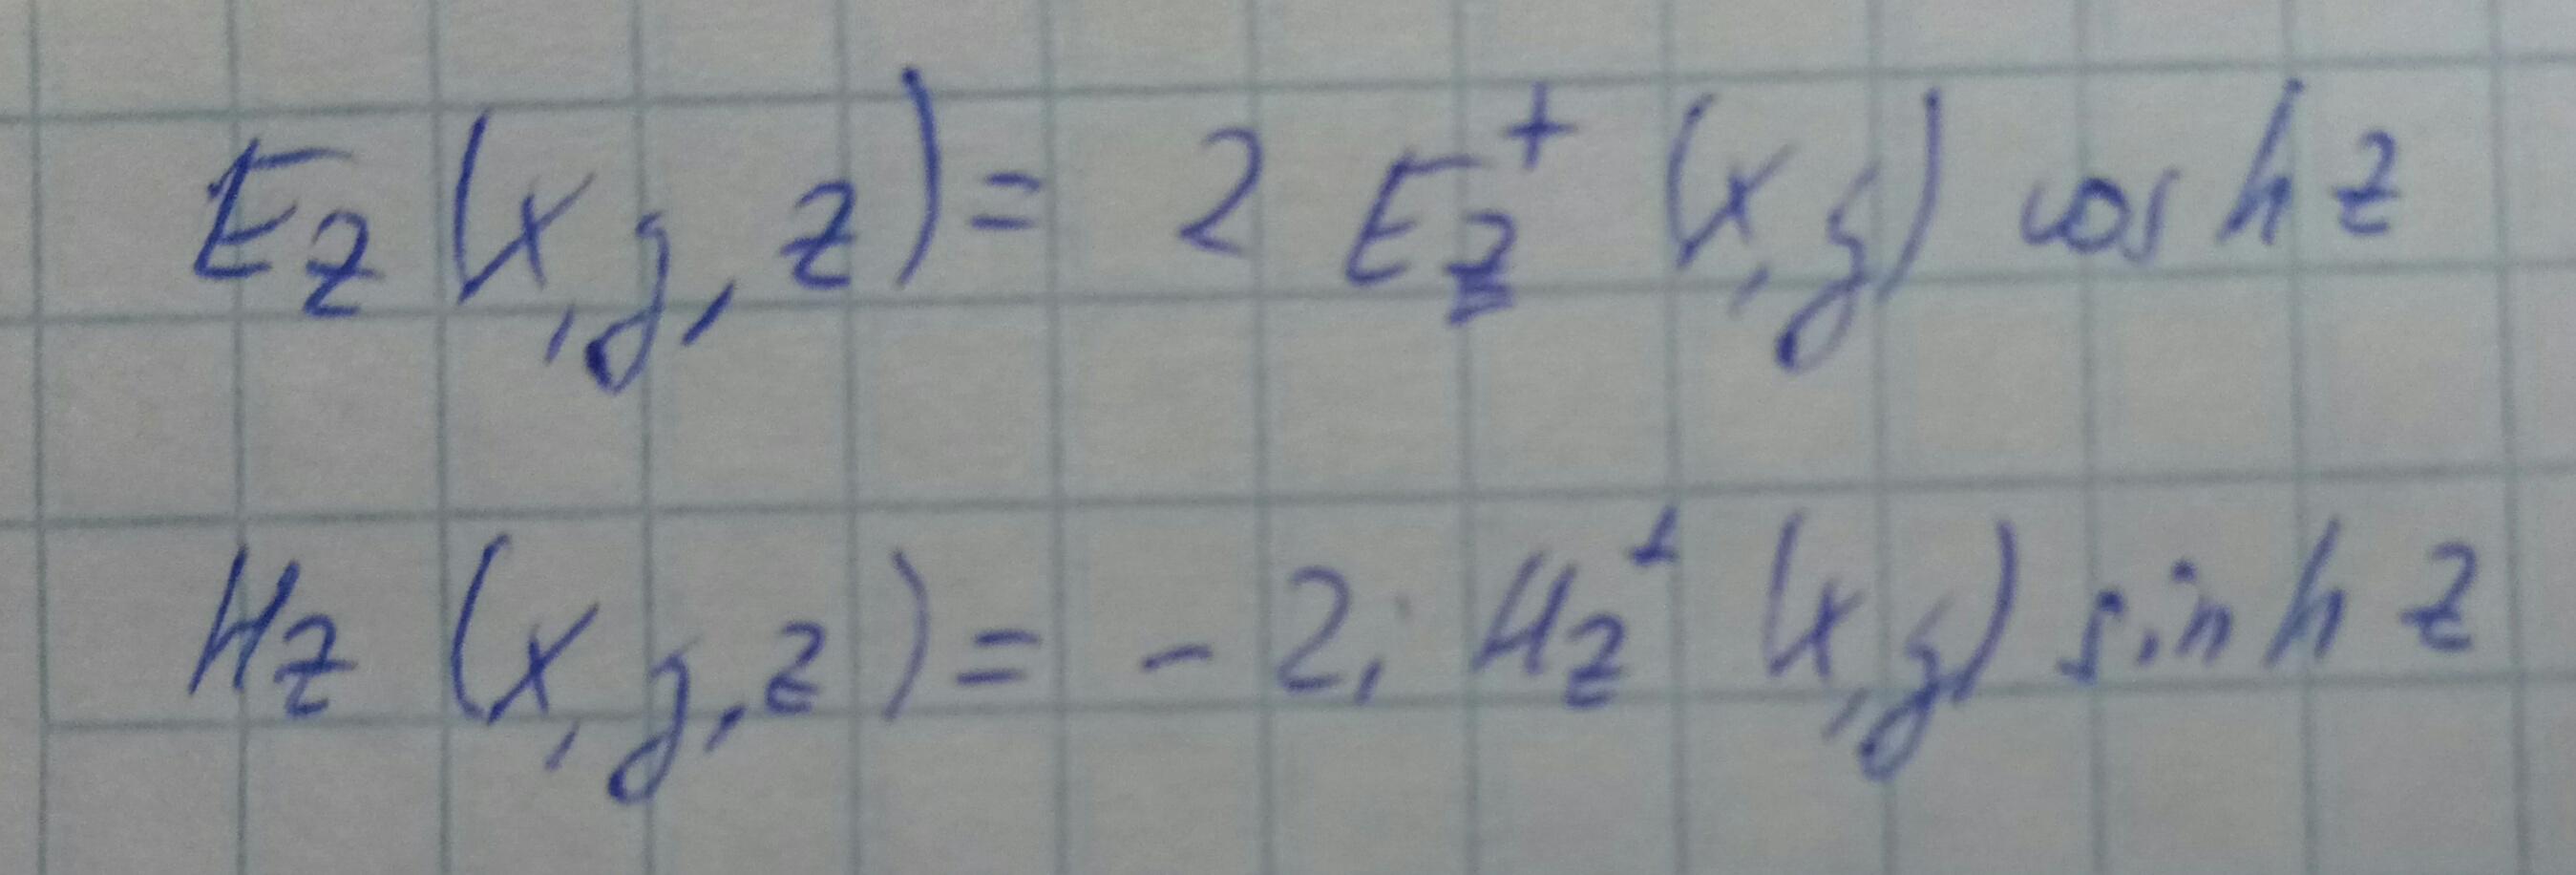 E_z (x, y, z) = 2 E_z^+ (x, y) cos h z
H_z (x, y, z) = - 2i H_z^+ (x, y) sin h z